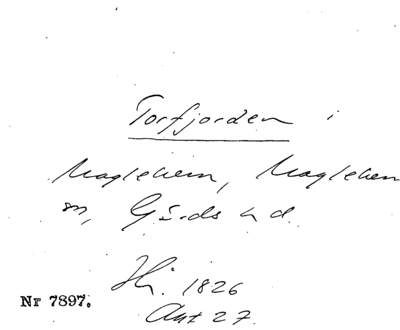 Torfjorden i
Maglehem, Maglehem
sn, Gärds hd.
Hi. 1826
Akt 27.
Nr 7897.